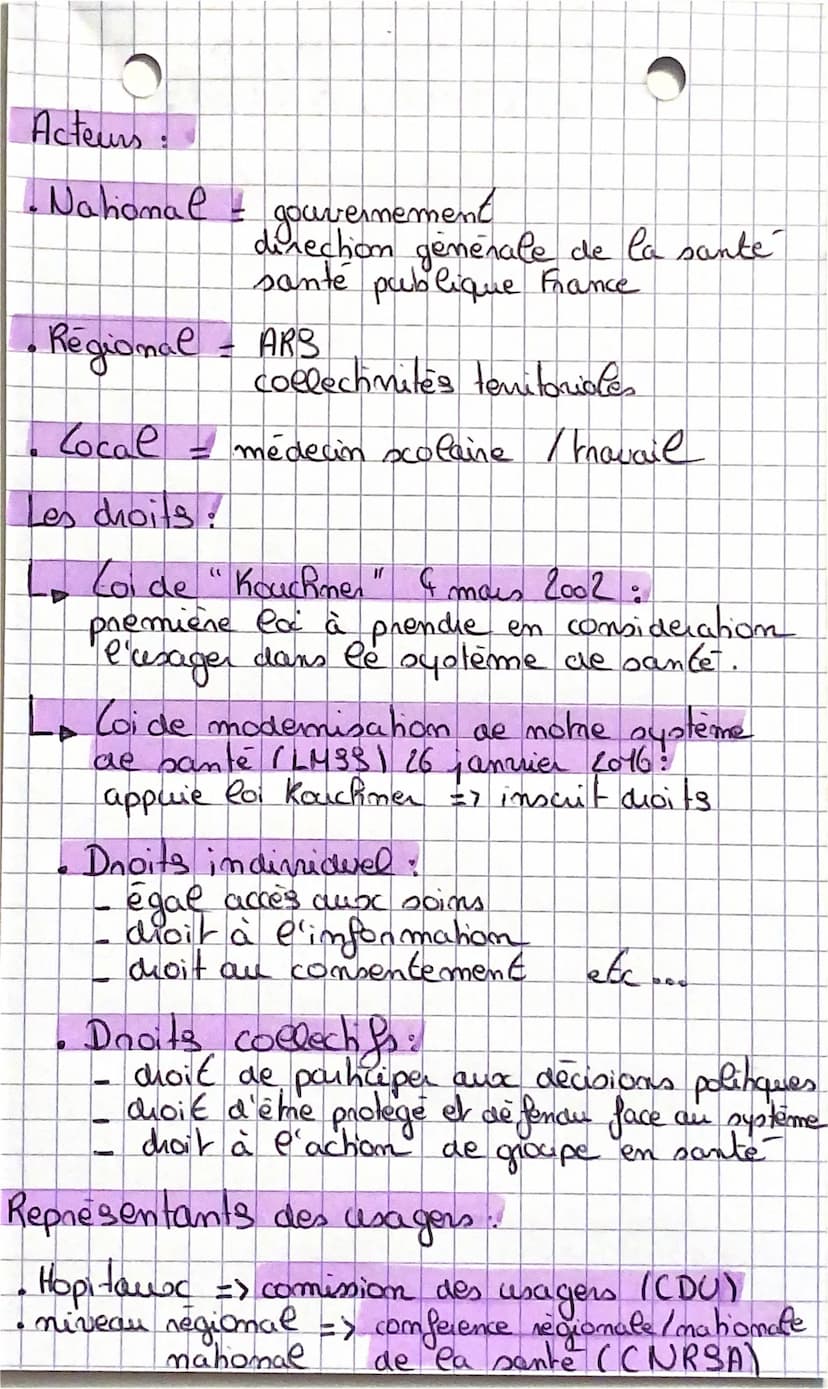 Acteurs :
. National = gouvernement
direction générale de la santé
santé publique France
. Régional = ARS
collectivités territoriales
. Local = médecin scolaire / travail
Les droits :
↳ Loi de "Kouchner" 4 mars 2002 :
première loi à prendre en consideration
l'usager dans le système de santé.
↳ Loi de modernisation de notre système
de santé (LMSS) 26 janvier 2016 :
appuie loi Kouchner => inscrit droits
. Droits individuel :
- égal accès aux soins
- droit à l'information
- droit au consentement etc ...
. Droits collectifs :
- droit de participer aux décisions politiques
- droit d'être protégé et défendu face au système
- droit à l'action de groupe en santé
Représentants des usagers :
. Hopitaux => comission des usagers (CDU)
. niveau régional => conférence régionale/nationale
national de la santé (CNRSA)